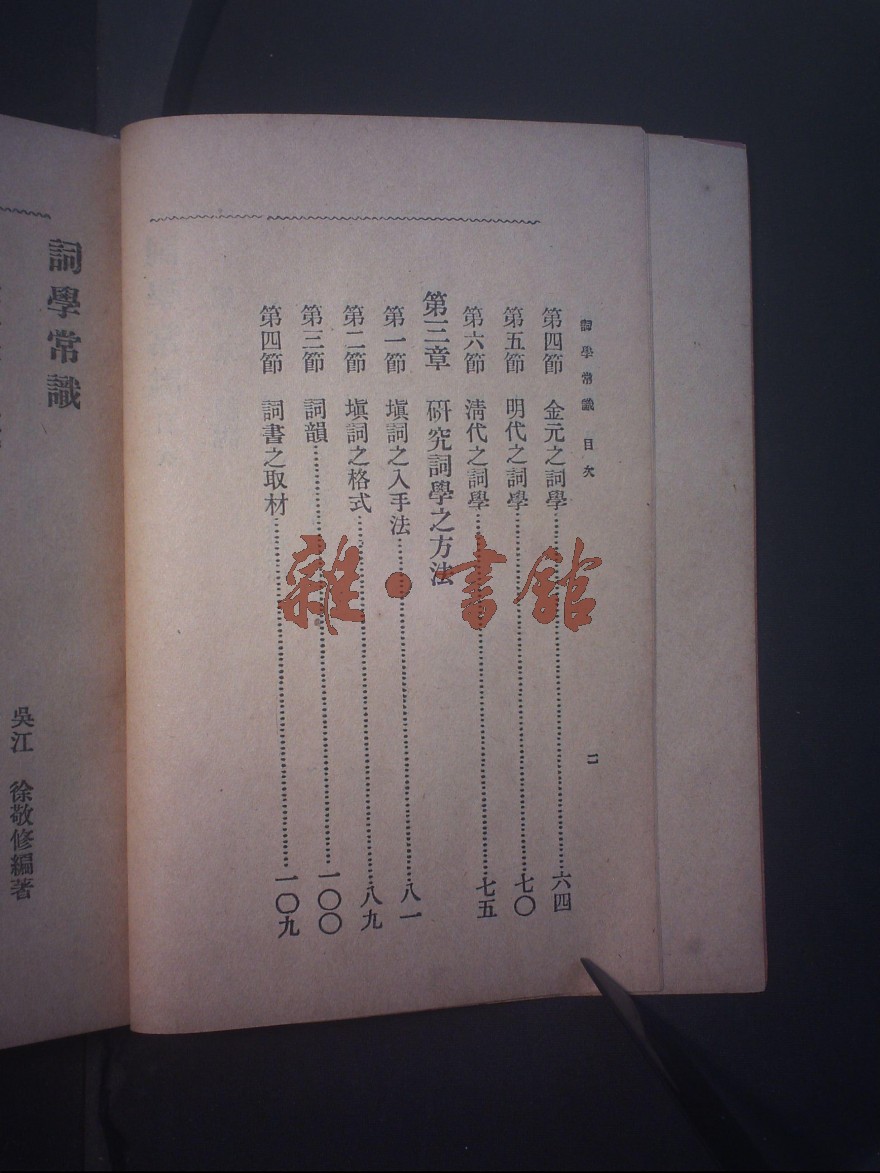 詞學常識 目次
二
第四節 金元之詞學……六四
第五節 明代之詞學……七〇
第六節 清代之詞學……七五
第三章 研究詞學之方法
第一節 塡詞之入手法……八一
第二節 塡詞之格式……八九
第三節 詞韻……一〇〇
第四節 詞書之取材……一〇九
雜·書館
詞學常識
吳江 徐敬修編著